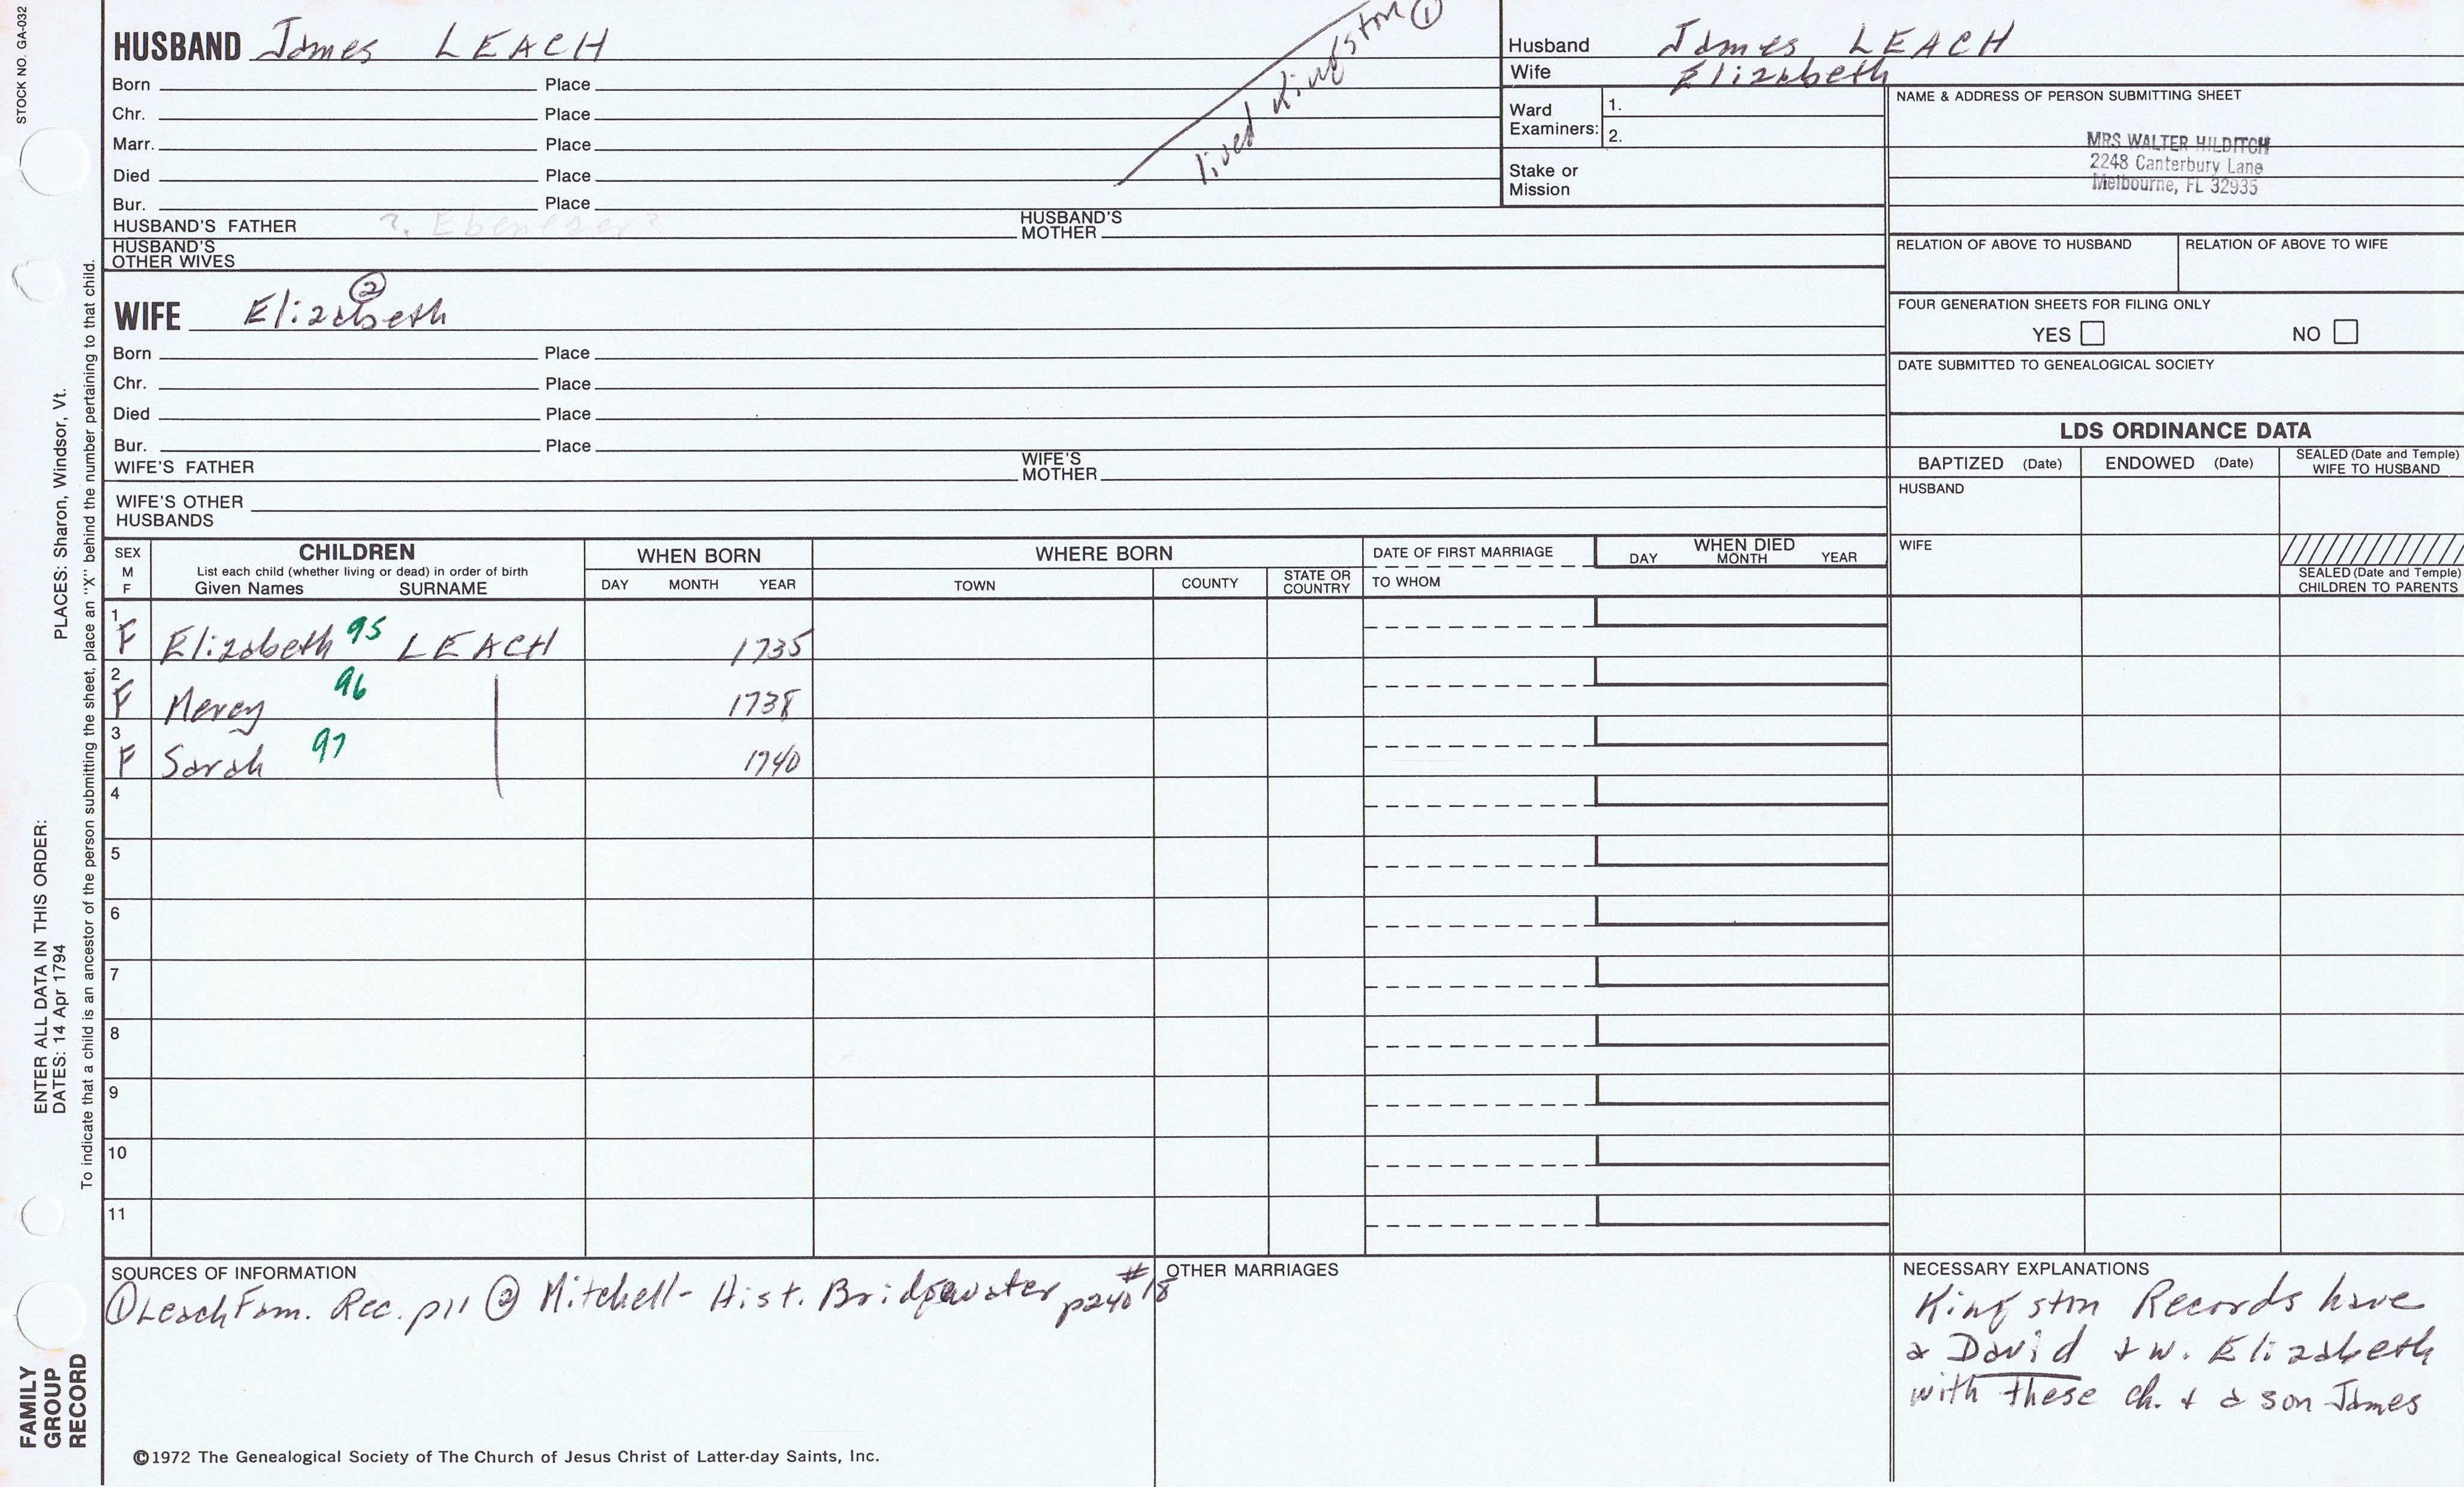 STOCK NO. GA-032
HUSBAND James LEACH
Born Place
Chr. Place
Marr. Place
Died Place
Bur. Place
HUSBAND'S FATHER ?. Ebenezer? HUSBAND'S MOTHER
HUSBAND'S OTHER WIVES
lived Kingston ①
Husband James LEACH
Wife Elizabeth
Ward Examiners: 1.
2.
Stake or Mission
NAME & ADDRESS OF PERSON SUBMITTING SHEET
MRS WALTER HILDITCH
2248 Canterbury Lane
Melbourne, FL 32935
RELATION OF ABOVE TO HUSBAND RELATION OF ABOVE TO WIFE
FOUR GENERATION SHEETS FOR FILING ONLY
YES NO
DATE SUBMITTED TO GENEALOGICAL SOCIETY
WIFE Elizabeth ②
Born Place
Chr. Place
Died Place
Bur. Place
WIFE'S FATHER WIFE'S MOTHER
WIFE'S OTHER HUSBANDS
LDS ORDINANCE DATA
BAPTIZED (Date) ENDOWED (Date) SEALED (Date and Temple) WIFE TO HUSBAND
HUSBAND
WIFE
SEALED (Date and Temple) CHILDREN TO PARENTS
SEX M F
CHILDREN
List each child (whether living or dead) in order of birth
Given Names SURNAME
WHEN BORN
DAY MONTH YEAR
WHERE BORN
TOWN COUNTY STATE OR COUNTRY
DATE OF FIRST MARRIAGE
TO WHOM
WHEN DIED
DAY MONTH YEAR
1 F Elizabeth 95 LEACH 1735
2 F Mercy 96 1738
3 F Sarah 97 1740
4
5
6
7
8
9
10
11
SOURCES OF INFORMATION
① Leach Fam. Rec. p11 ② Mitchell- Hist. Bridgewater p240 #18
OTHER MARRIAGES
NECESSARY EXPLANATIONS
Kingston Records have
a David + w. Elizabeth
with these ch. + a son James
©1972 The Genealogical Society of The Church of Jesus Christ of Latter-day Saints, Inc.
FAMILY GROUP RECORD
ENTER ALL DATA IN THIS ORDER:
DATES: 14 Apr 1794
PLACES: Sharon, Windsor, Vt.
To indicate that a child is an ancestor of the person submitting the sheet, place an "X" behind the number pertaining to that child.